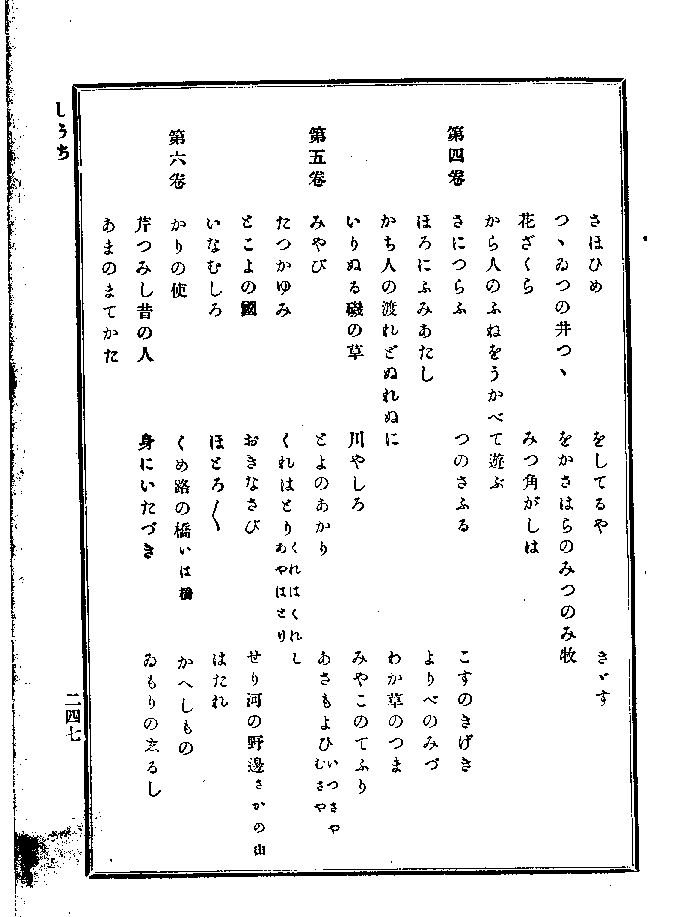 さほひめ　をしてるや　きゞす
つゝゐつの井つゝ　をかさはらのみつのみ牧
花ざくら　みつ角がしは
から人のふねをうかべて遊ぶ
第四卷
さにつらふ　つのさふる　こすのきげき
ほろにふみあたし　よりべのみづ
かち人の渡れどぬれぬに　わか草のつま
いりぬる磯の草　川やしろ　みやこのてふり
第五卷
みやび　とよのあかり　あさもよひいつさやむさや
たつかゆみ　くれはとりくれはくれしあやはとり
とこよの國　おきなさび　せり河の野邊さかの山
いなむしろ　ほとろ〱　はたれ
第六卷
かりの使　くめ路の橋いは橋　かへしもの
芹つみし昔の人　身にいたづき　ゐもりのしるし
あまのまてかた
しうち
二四七